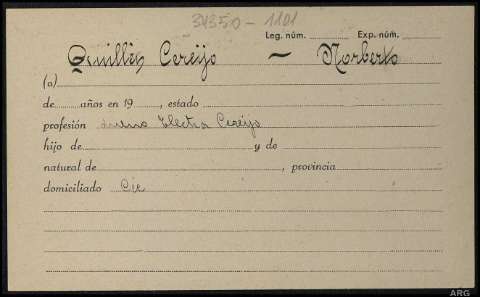 34350 - 1101
Leg. núm. Exp. núm.
Quillén Cereijo — Norberto
(a)
de años en 19 , estado
profesión dueno Electra Cereijo
hijo de y de
natural de , provincia
domiciliado Cee
ARG